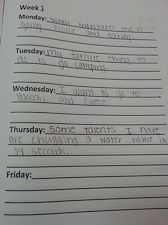 Week 1
Monday: What motivates me is
going home and eating.
Tuesday: my favorite thing to
do is go camping.
Wednesday: I want to go to
Hawaii and
Thursday: Some talents I have
are chugging a water bottle in
34 seconds.
Friday: